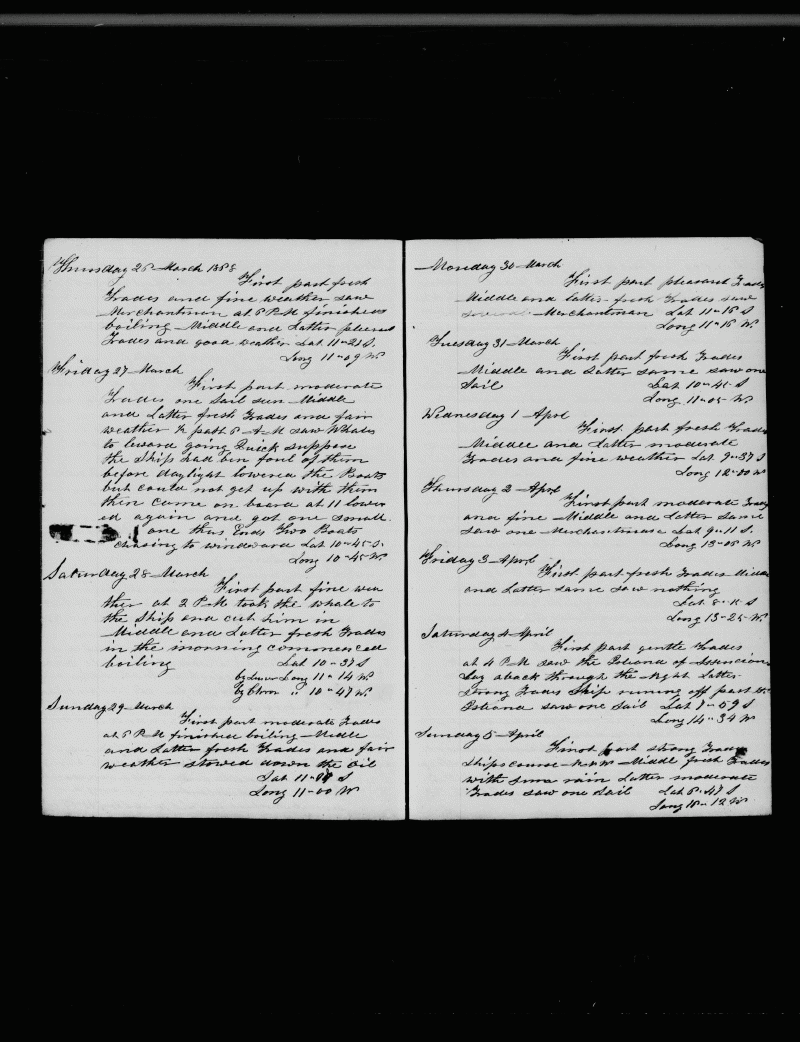 Thursday 26 March 1868
First part fresh
Trades and fine weather saw
Merchantman at 6 P M finished
boiling Middle and Latter pleasant
Trades and good weather Lat 11-21 S.
Long 11-09 W.
Friday 27 March
First part moderate
Trades one sail seen Middle
and Latter fresh Trades and fair
weather ½ past 5 A-M saw Whales
to leward going Quick suppose
the Ship had bin foul of them
before daylight lowered the Boats
but could not get up with them
then came on board at 11 lower
ed again and got one small
one thus Ends Two Boats
chasing to windward Lat 10-45 S.
Long 10-45 W.
Saturday 28 March
First part fine wea
ther at 2 P M took the whale to
the Ship and cut him in
Middle and Latter fresh Trades
in the morning commenced
boiling Lat 10-37 S
by Lunar Long 11-14 W.
by Chron " 10-47 W.
Sunday 29 March
First part moderate Trades
at 6 P M finished boiling Middle
and Latter fresh Trades and fair
weather stowed down the oil
Lat 11-01 S
Long 11-00 W
Monday 30 March
First part pleasant Trades
Middle and latter fresh Trades saw
Merchantman Lat 11-16 S
Long 11-16 W.
Tuesday 31 March
First part fresh Trades
Middle and Latter same saw one
Sail Lat 10-45 S
Long 11-05 W.
Wednesday 1 Aprl
First part fresh Trades
Middle and Latter moderate
Trades and fine weather Lat 9-37 S
Long 12-00 W
Thursday 2 Aprl
First part moderate Trades
and fine Middle and Latter same
saw one Merchantman Lat 9-11 S.
Long 13-05 W.
Friday 3 Aprl
First part fresh Trades Middle
and Latter same saw nothing
Lat 8-15 S
Long 13-25 W.
Saturday 4 April
First part gentle Trades
at 4 P M saw the Island of Assencion
Lay aback through the night Latter
Strong Trades Ship runing off part the
Island saw one Sail Lat 7-59 S
Long 14-34 W
Sunday 5 April
First part strong Trades
Ships course N.W. Middle fresh Trades
with sum rain Latter moderate
Trades saw one Sail Lat 6-47 S
Long 15-12 W